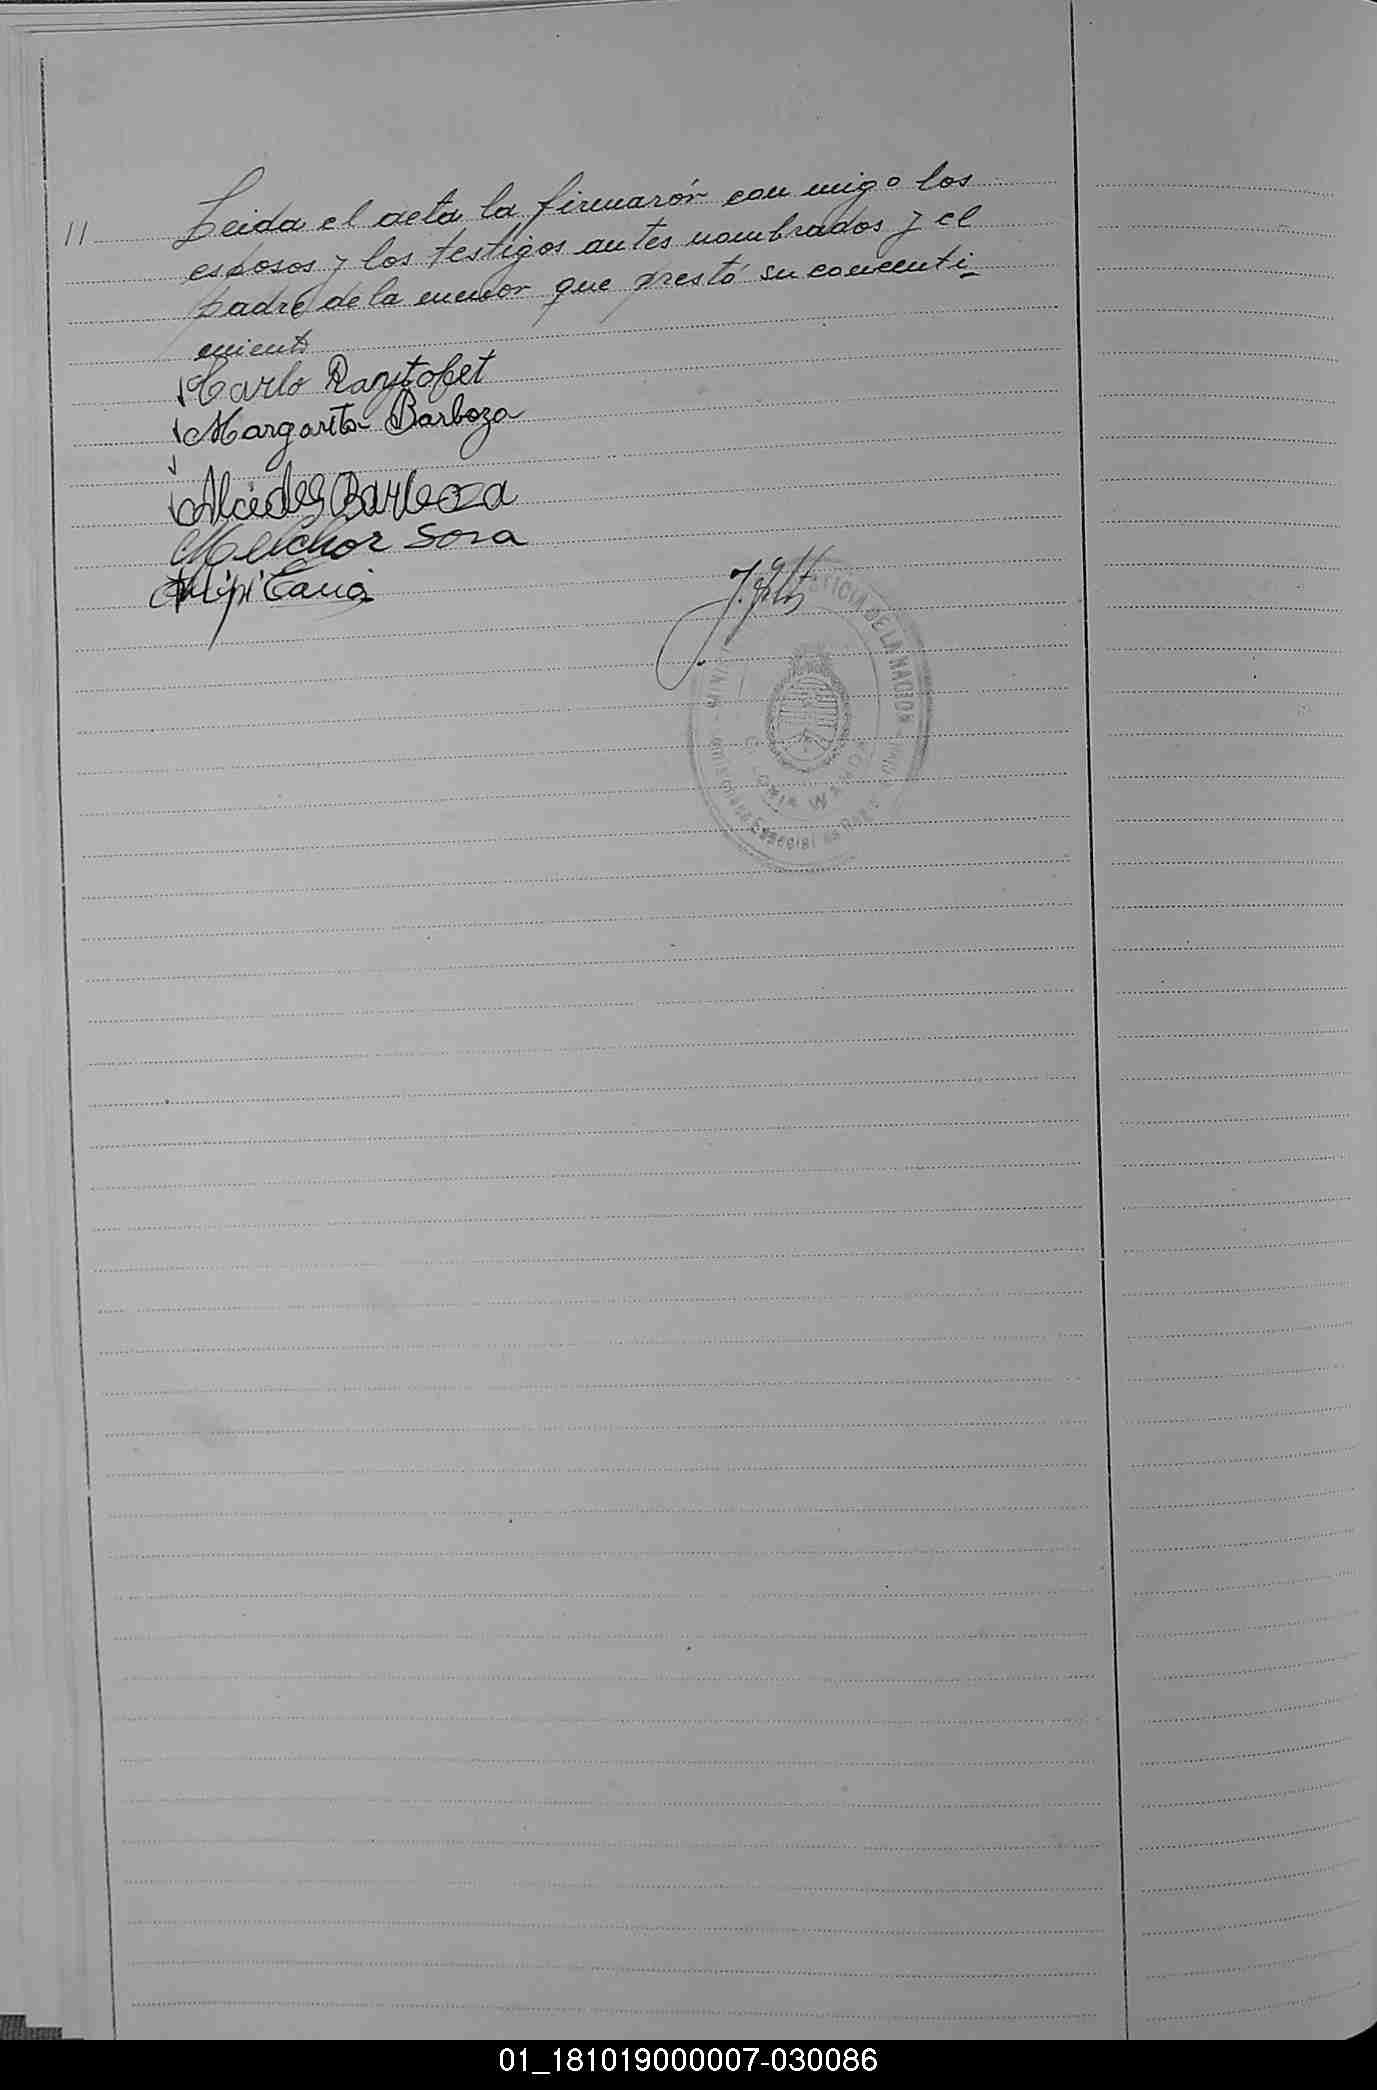 11 Leida el acta la firmarón con migo los
esposos y los testigos antes nombrados y el
padre de la menor que prestó su concenti_
miento
Carlo
Margarita Barboza
Alcides Barboza
Melchor Sosa
JUSTICIA DE LA NACION
01_181019000007-030086